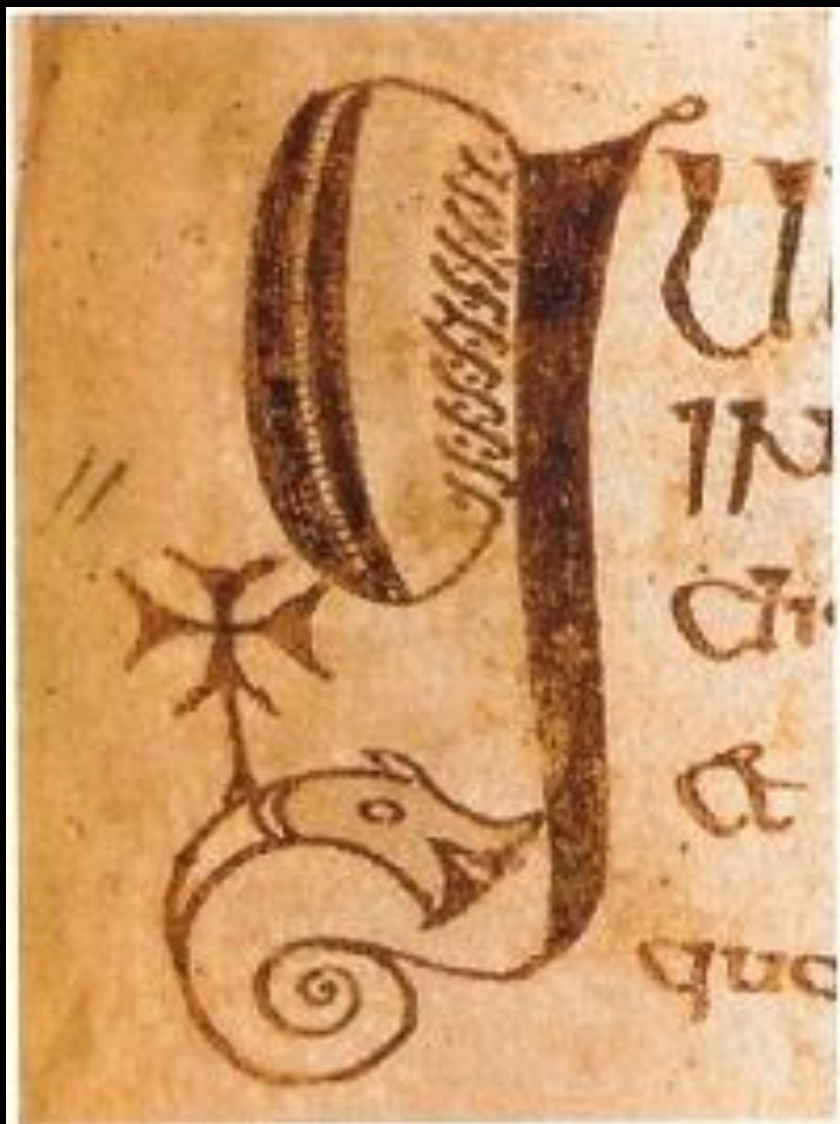 QUI
IN
dic
a
quo